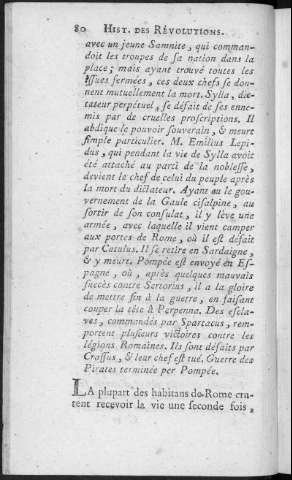 80 HIST. DES RÉVOLUTIONS.
avec un jeune Samnite, qui comman-
doit les troupes de sa nation dans la
place; mais ayant trouvé toutes les
issues fermées, ces deux chefs se don-
nent mutuellement la mort. Sylla, dic-
tateur perpétuel, se défait de ses enne-
mis par de cruelles proscriptions. Il
abdique le pouvoir souverain, & meurt
simple particulier. M. Emilius Lepi-
dus, qui pendant la vie de Sylla avoit
été attaché au parti de la noblesse,
devient le chef de celui du peuple après
la mort du dictateur. Ayant eu le gou-
vernement de la Gaule cisalpine, au
sortir de son consulat, il y lève une
armée, avec laquelle il vient camper
aux portes de Rome, où il est défait
par Catulus. Il se retire en Sardaigne,
& y meurt. Pompée est envoyé en Es-
pagne, où, après quelques mauvais
succès contre Sertorius, il a la gloire
de mettre fin à la guerre, en faisant
couper la tête à Perpenna. Des escla-
ves, commandés par Spartacus, rem-
portent plusieurs victoires contre les
légions Romaines. Ils sont défaits par
Crassus, & leur chef est tué. Guerre des
Pirates terminée par Pompée.
LA plupart des habitans de Rome cru-
rent recevoir la vie une seconde fois,